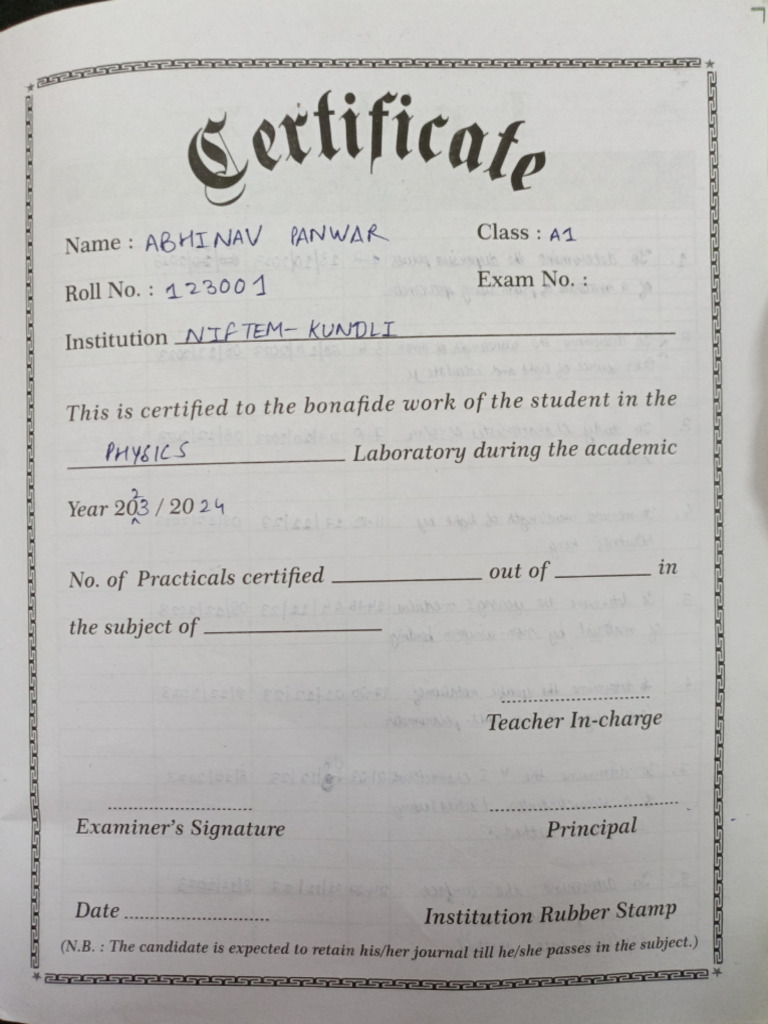 Certificate
Name : ABHINAV PANWAR Class : A1
Roll No. : 123001 Exam No. :
Institution NIFTEM- KUNDLI
This is certified to the bonafide work of the student in the
PHYSICS Laboratory during the academic
Year 2023 / 2024
No. of Practicals certified ____________ out of ________ in
the subject of ______________
Teacher In-charge
Examiner's Signature Principal
Date ........................ Institution Rubber Stamp
(N.B. : The candidate is expected to retain his/her journal till he/she passes in the subject.)